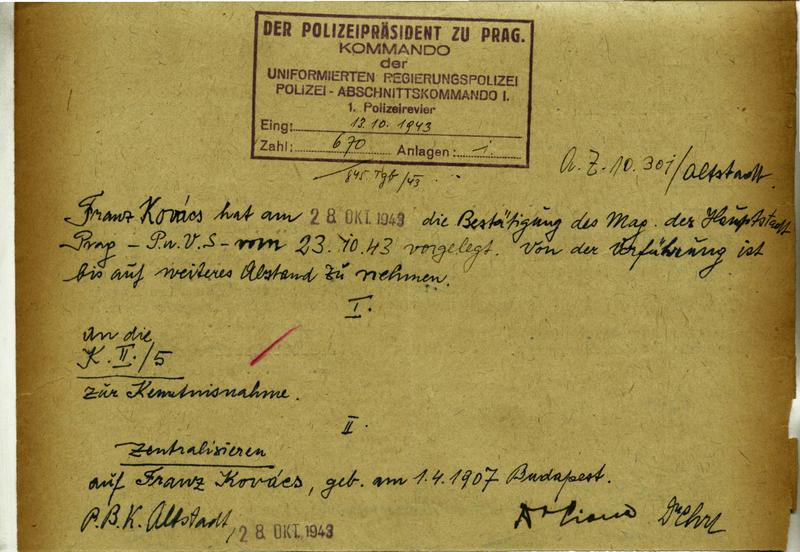 DER POLIZEIPRÄSIDENT ZU PRAG.
KOMMANDO
der
UNIFORMIERTEN REGIERUNGSPOLIZEI
POLIZEI - ABSCHNITTSKOMMANDO I.
1. Polizeirevier
Eing: 13.10.1943
Zahl: 670 Anlagen: 1.
845 Tgb/43
A.Z. 10.301/Altstadt.
Franz Kovács hat am 28 OKT. 1943 die Bestätigung des Mag. der Hauptstadt
Prag - P.u.V.S - vom 23.10.43 vorgelegt. Von der Vorführung ist
bis auf weiteres Abstand zu nehmen.
I.
An die
K.II./5
zur Kenntnisnahme.
II.
Zentralisieren
auf Franz Kovács, geb. am 1.4.1907 Budapest.
P.B.K. Altstadt, 28 OKT. 1943